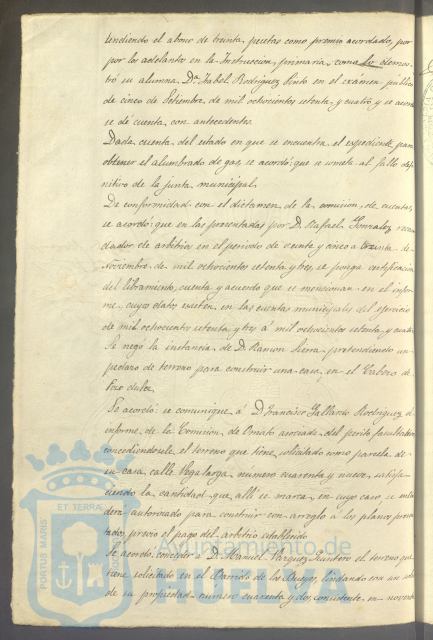 tendiendo el abono de treinta pesetas como premio acordado, por
por los adelantos en la Instruccion primaria, como lo demos-
tró su alumna Dª Isabel Rodriguez Pinto en el exámen público
de cinco de Setiembre de mil ochocientos setenta y cuatro y se acordó
se dé cuenta con antecedentes.
Dada cuenta del estado en que se encuentra el expediente para
obtener el alumbrado de gas se acordó: que se someta al fallo defi-
nitivo de la junta municipal.
De conformidad con el dictámen de la comision de cuentas,
se acordó: que en las presentadas por D. Rafael Gonzalez recau-
dador de arbitrios en el periodo de veinte y cinco a treinta de
Noviembre de mil ochocientos setenta y tres, se ponga certificacion
del libramiento, cuenta y acuerdo que se mencionan en el infor-
me, cuyos datos existen en las cuentas municipales del ejercicio
de mil ochocientos setenta y tres á mil ochocientos setenta y cuatro
Se negó la instancia de D. Ramon Sierra pretendiendo un
pedazo de terreno para construir una casa, en el Cabezo de
Pozo dulce.
Se acordó se comunique á D. Francisco Gallardo Rodriguez el
informe de la Comision de Ornato asociada del perito facultativo
concediendosele el terreno que tiene solicitado como parcela de
su casa calle Vega larga, número cuarenta y nueve, satisfa-
ciendo la cantidad que allí se marca, en cuyo caso se enten-
derá autorizado para construir con arreglo á los planos presen-
tados, previo el pago del arbitrio establecido
Se acordó conceder á D. Manuel Vazquez Quintero el terreno que
tiene solicitado en el Barrido de los Bueyes, lindando con un
de su propiedad número cuarenta y dos, consistente en noventa
PORTUS MARIS
ET TERRAE
Ayuntamiento de
HUELVA